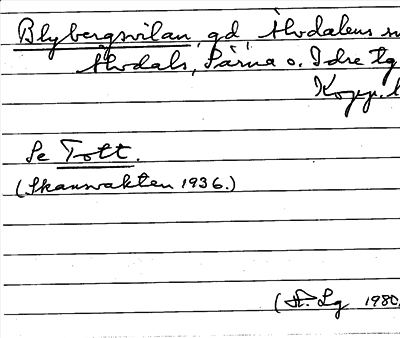 Blybergsvilan, gd Älvdalens
Älvdals, Särna o. Idre tg
Kopp.
Se Tott.
(Skansvakten 1936.)
Lg 1980